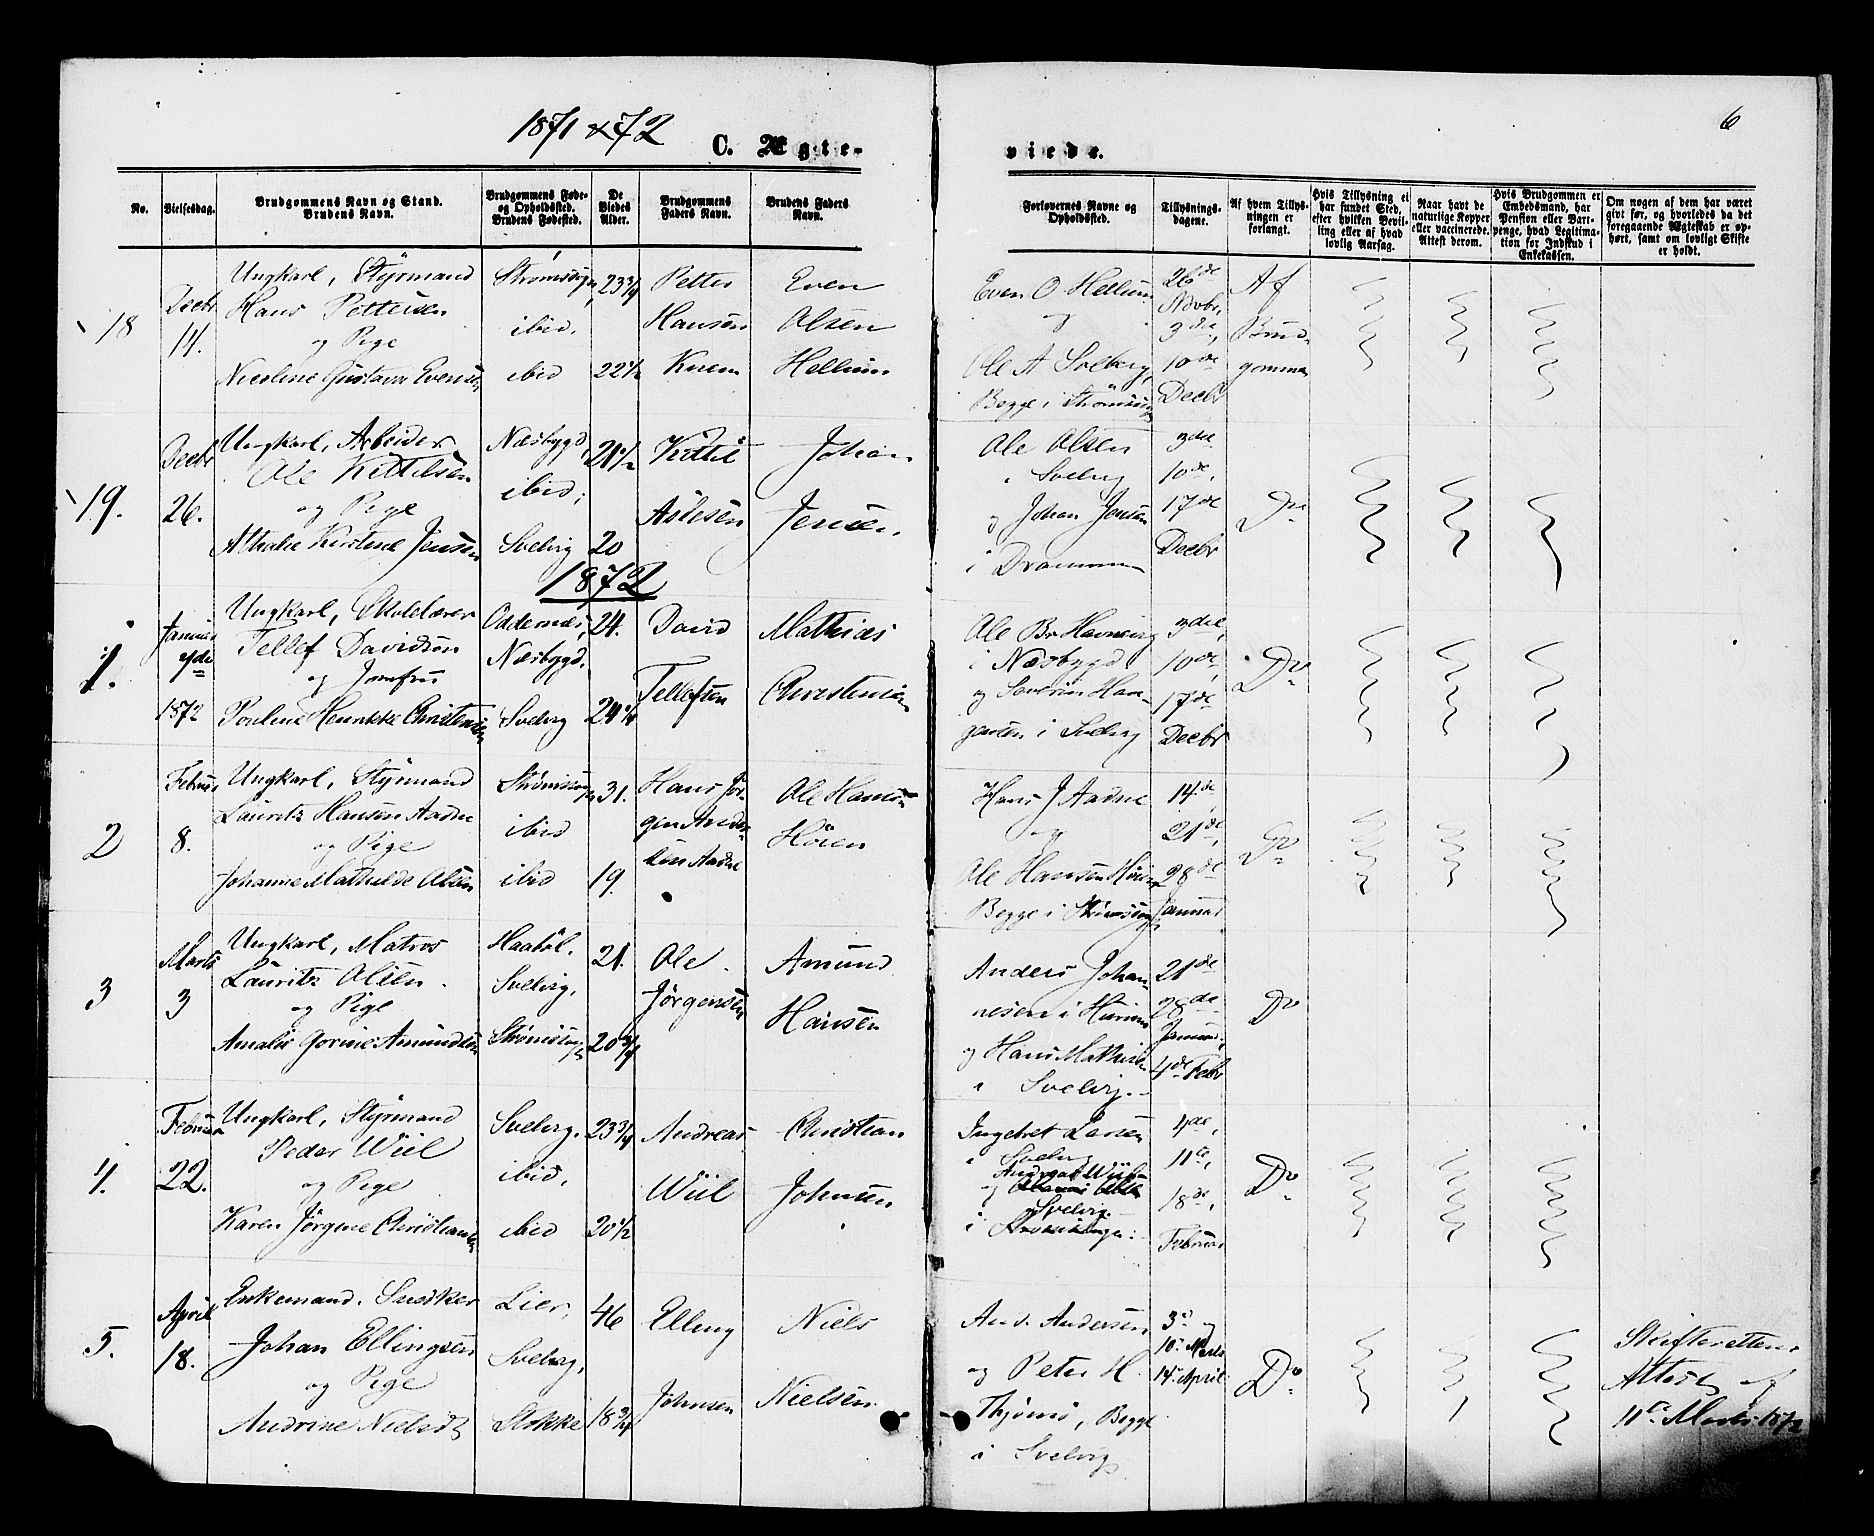 1871 & 72
C. Ægte-
viede.
6
No.
Vielsesdag.
Brudgommens Navn og Stand.
Brudens Navn.
Brudgommens Føde-
og Opholdssted.
Brudens Fødested.
De
Viedes
Alder.
Brudgommens
Faders Navn.
Brudens Faders
Navn.
Forlovernes Navne og
Opholdssted.
Tillysnings-
dagene.
Af hvem Tillys-
ningen er
forlangt.
Hvis Tillysning ei
har fundet Sted,
efter hvilken Bevil-
ling eller af hvad
lovlig Aarsag.
Naar havt de
naturlige Kopper
eller vaccinerede.
Attest derom.
Hvis Brudgommen er
Embedsmand, har
Pension eller Vart-
penge, hvad Legitima-
tion for Indskud i
Enkekassen.
Om nogen af dem har været
gift før, og hvorledes da det
foregaaende Ægteskab er op-
hørt, samt om lovligt Skifte
er holdt.
18
Decbr
14.
Ungkarl, Styrmand
Hans Pettersen
og Pige
Nicoline Gustava Evensen
ibid.
ibid
23 3/4
22 1/2
Petter
Hansen
Even
Olsen
Hellum
Even O Hellum
og
Ole A Solberg,
Begge i
26de
Novbr,
3die,
10de
Decbr
Af
Brud-
gommen
19.
Decbr
26.
Ungkarl, Arbeider
Ole Kittilsen
og Pige
Athalie Kirstine Jensen
Næsbygd,
ibid,
Svelvig
21 1/2
20
Kittil
Aslesen
Johan
Jensen.
Ole Olsen
i Svelvig
og Johan Jensen
i Drammen
3die
10de,
17de
Decbr
Do
1872
1.
Januar
1872
Ungkarl, Skolelærer
Tellef Davidsen
og Jomfru
Pouline Henrikke Christensen
Oddernes,
Næsbygd.
Svelvig
24.
24 1/4
David
Tellefsen
Mathias
Christensen
Ole Br Havnevig
i Næsbygd
og Severin Haa-
gensen i Svelvig
3die,
10de,
17de
Decbr
Do
2
Februar
8.
Ungkarl, Styrmand
Lauritz Hansen Aadne
og Pige
Johanne Mathilde Olsen
ibid
ibid
31.
19.
Hans Jør-
gen
Aadne
Ole Hansen
Höien
Hans J Aadne
og
Ole Hansen Höien
Begge i
14de
21de,
28de
Januar
Do
3
Marts
3
Ungkarl, Matros
Lauritz Olsen
og Pige
Amalie Gorine Amundsen
Haabøl.
Svelvig,
21.
20 3/4
Ole
Jørgensen
Amund
Hansen
Anders Johan-
nesen i Hurum
og Hans Mathisen
i Svelvig.
21de
28de
Januar,
4de Febr
Do
4.
Februar
22.
Ungkarl, Styrmand
Peder Wiil
og Pige
Karen Jørgine Christiansen
Svelvig.
ibid,
ibid
23 3/4
20 1/2
Andreas
Wiil
Christian
Johnsen
Ingebret Larsen
i Svelvig
og Andreas Wiil
i Svelvig.
4de,
11te,
18de,
Februar
Do
5.
April
18.
Enkemand. Snedker
Johan Ellingsen
og Pige
Andrine Nielsdt
Lier,
Svelvig,
Stokke
46
18 3/4
Elling
Johnsen
Niels
Nielsen
And. Andersen
og Peter H.
Thjømø, Begge
i Svelvig
3de og
10de Marts
14de April
Do
Skifterettens
Attest af
11te Marts 1872